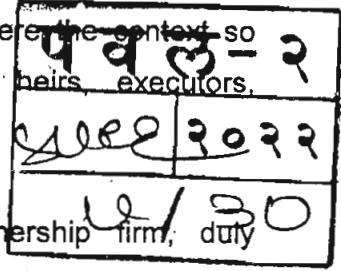 ere the context so
प व ल - २
heirs, executors,
२०२२
५ / ३०
nership firm, duly